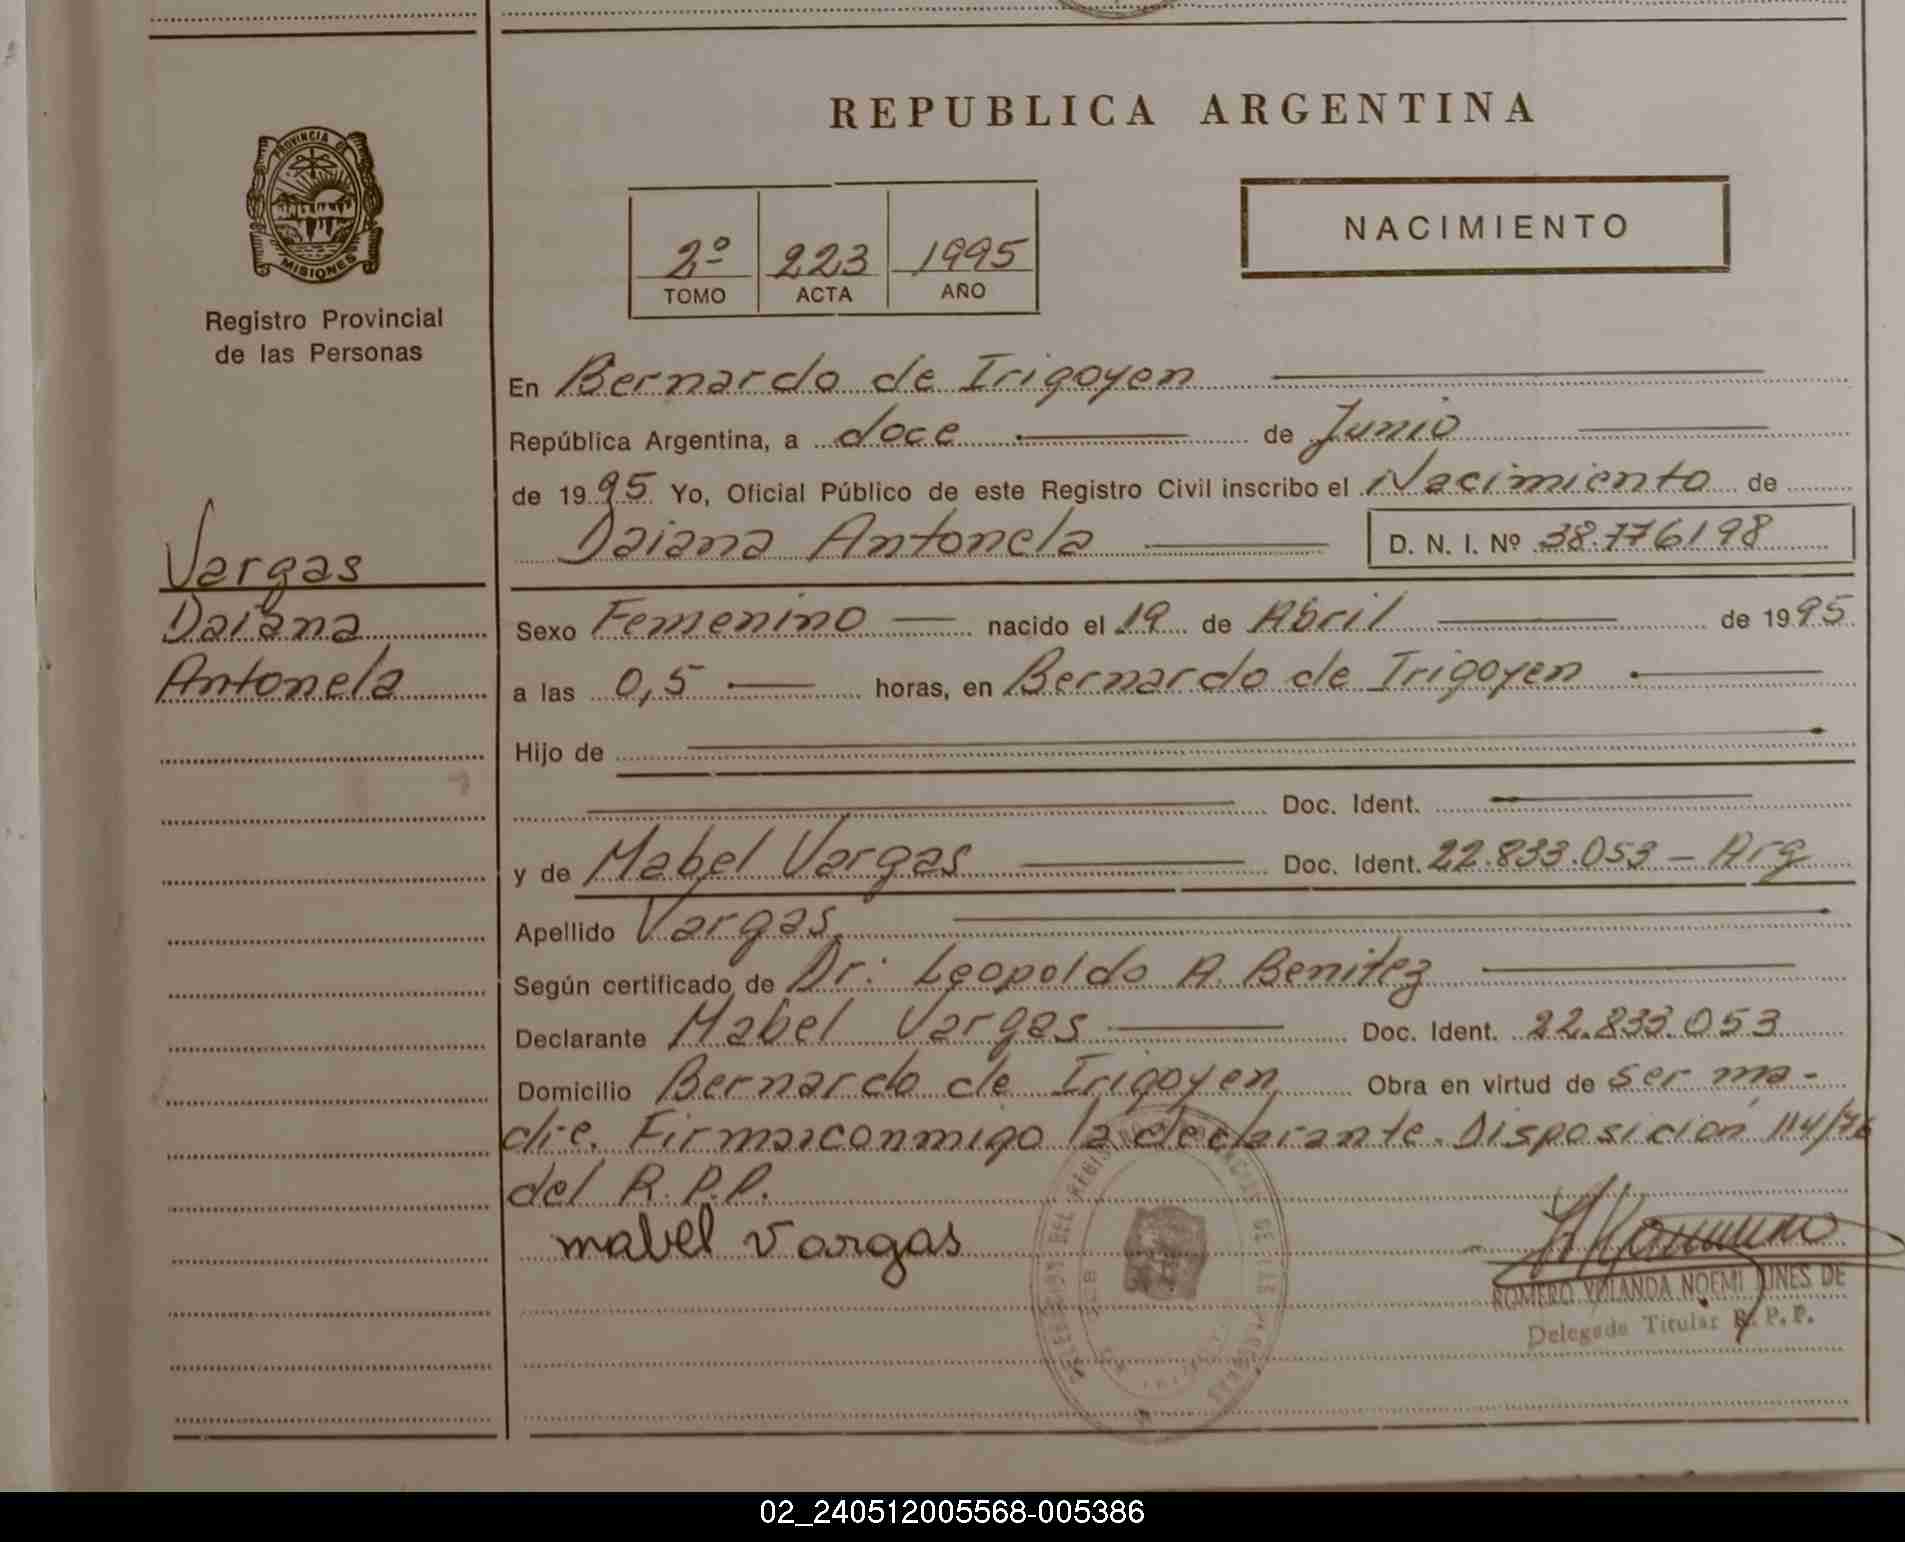 REPUBLICA ARGENTINA
PROVINCIA DE
MISIONES
Registro Provincial
de las Personas
2º 223 1995
TOMO ACTA AÑO
NACIMIENTO
En Bernardo de Irigoyen
República Argentina, a doce de Junio
de 1995 Yo, Oficial Público de este Registro Civil inscribo el Nacimiento de
Daiana Antonela D. N. I. Nº 38.776198
Vargas
Daiana
Antonela
Sexo Femenino nacido el 19 de Abril de 1995
a las 0,5 horas, en Bernardo de Irigoyen
Hijo de
Doc. Ident.
y de Mabel Vargas Doc. Ident. 22.833.053 - Arg
Apellido Vargas
Según certificado de Dr: Leopoldo A. Benitez
Declarante Mabel Vargas Doc. Ident. 22.833.053
Domicilio Bernardo de Irigoyen Obra en virtud de ser ma-
dre. Firma conmigo la declarante. Disposición 114/76
del R.P.P.
mabel vargas
ROMERO YOLANDA NOEMI JINES DE
Delegada Titular R.P.P.
02_240512005568-005386